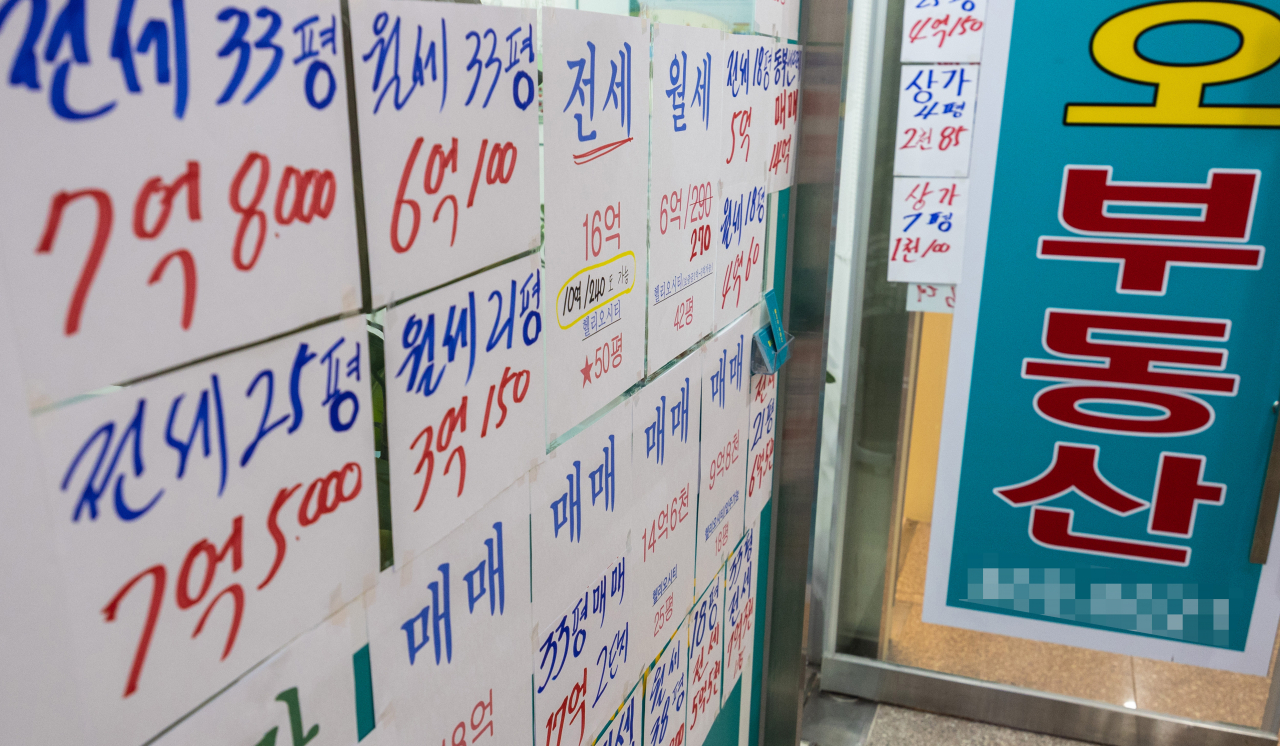 전세 33평
7억 8.000
월세 33평
6억 100
전세
16억
10억/240도 가능
헬리오시티
★50평
월세
6억/290
270
42평
전세 18평
5억
월세 18평
4억 60
매매
14억
전세 25평
7억 5.000
월세 21평
3억 150
매매
매매
33평 매매
2단지
17억
매매
14억6천
헬리오시티
25평
매매
9억8천
18평
전세
21평
6억5천
월세
38평
18평
전세
5억5천
33평
전세
4억150
상가
4평
2천 85
상가
7평
1천100
오
부
동
산